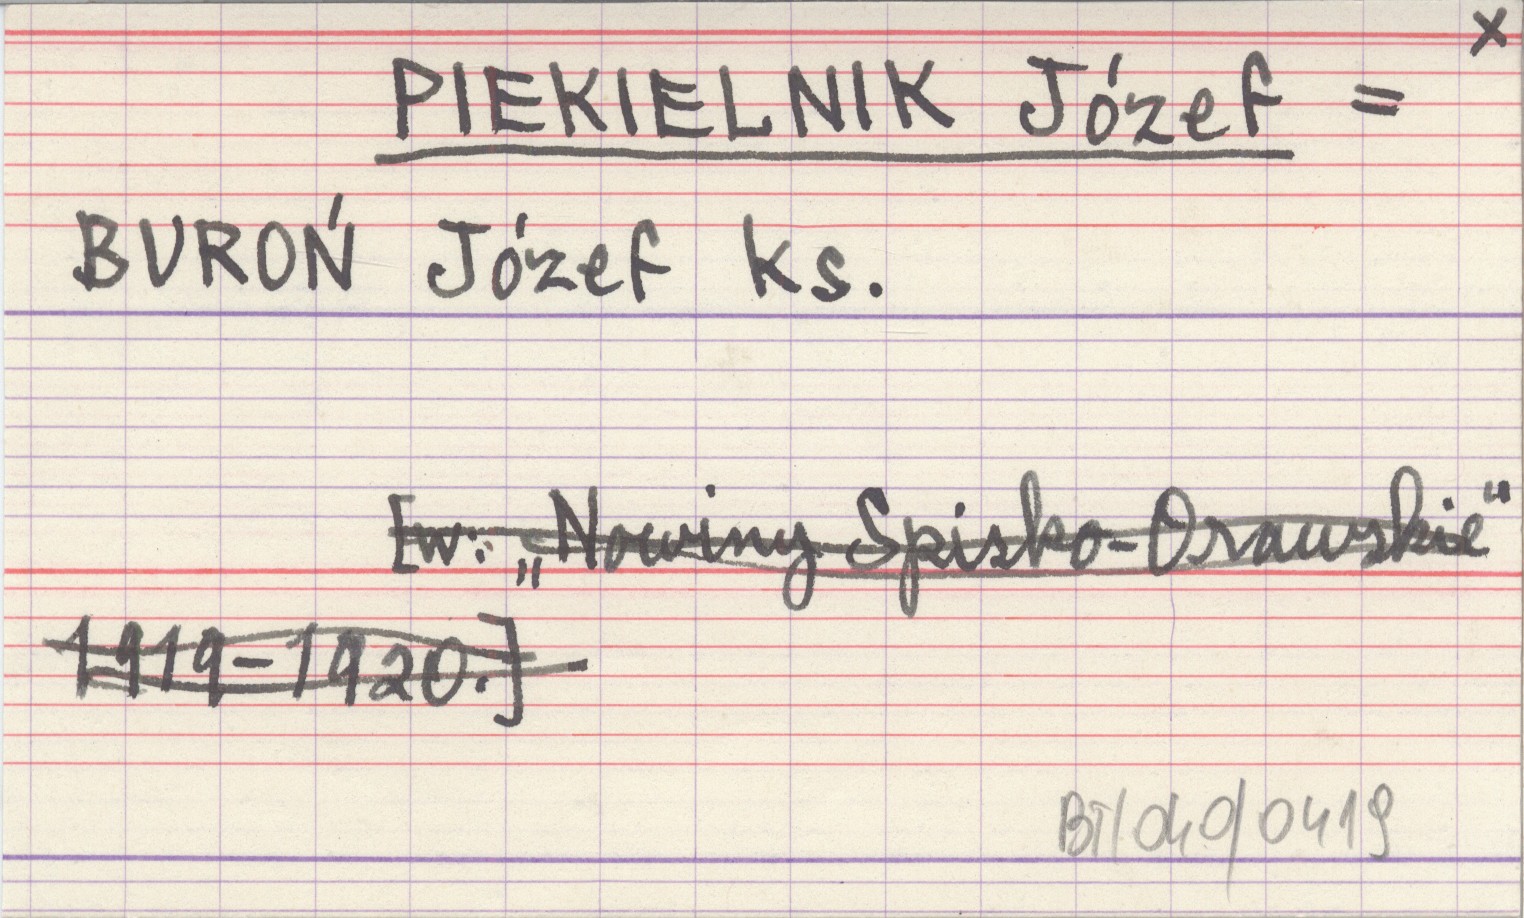 x
PIEKIELNIK Józef =
BUROŃ Józef ks.
[w: „Nowiny Spisko-Orawskie"
1919-1920.]
BT/040/0419